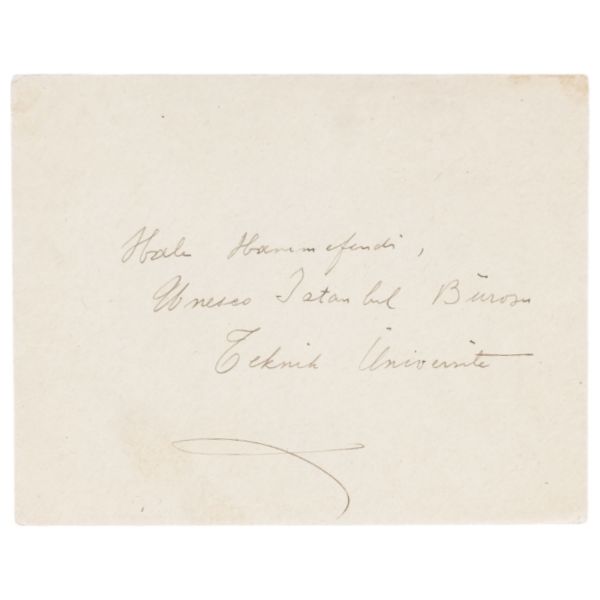 Hale Hanımefendi,
Unesco İstanbul Bürosu
Teknik Üniversite